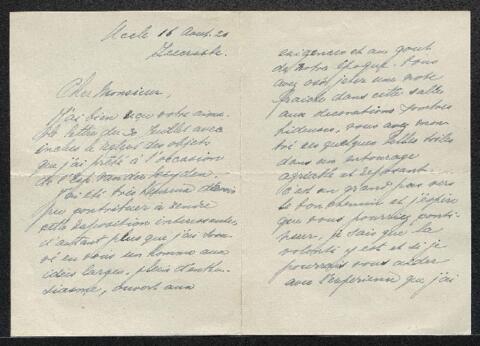 Uccle 16 Aout. 20
Cher Monsieur,
J'ai bien reçu votre aima-
ble lettre du 30 Juillet avec
inclus le relevé des objets
que j'ai prêté à l'occasion
de l'Exp. Van der Heyden.
J'ai été très heureux d'avoir
peu contribuer à rendre
cette exposition interessante,
d'autant plus que j'ai trou-
vé en vous un homme aux
idées larges, plein d'enthou-
siasme, ouvert aux
exigences et au gout
de notre Epoque. Vous
avez osé jeter une note
fraiche dans cette salle
aux decorations
hideuses, vous avez mon-
tré en quelques belles toiles
dans un entourage
agréable et reposant.
C'est un grand pas vers
le bon chemin et j'espère
que vous pourrez conti-
nuer, je sais que la
volonté y est et si je
pourrais vous aider
avec l'experience que j'ai